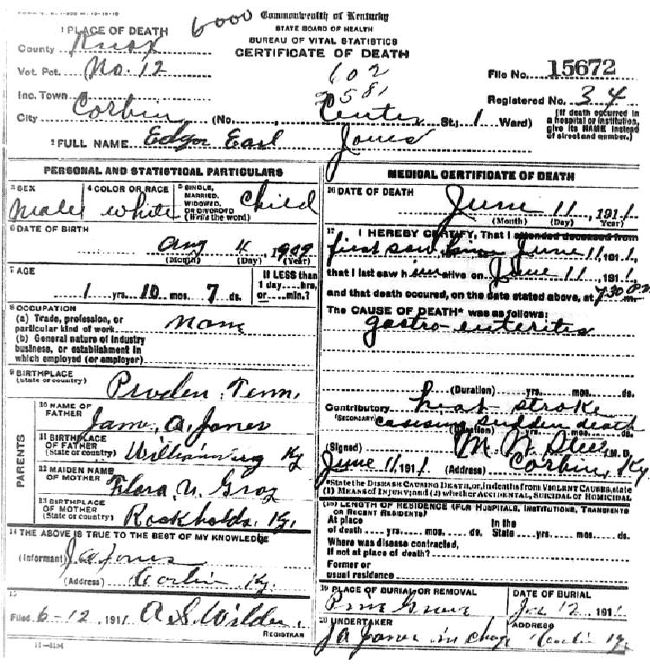 6000 Commonwealth of Kentucky
STATE BOARD OF HEALTH
BUREAU OF VITAL STATISTICS
CERTIFICATE OF DEATH
1 PLACE OF DEATH
County Knox
Vot. Pct. No. 12
Inc. Town
City Corbin (No. Center St., 1 Ward)
102
581
File No. 15672
Registered No. 34
(If death occurred in
a hospital or institution,
give its NAME instead
of street and number.)
2 FULL NAME Edgar Earl Jones
PERSONAL AND STATISTICAL PARTICULARS
3 SEX male
4 COLOR OR RACE white
5 SINGLE,
MARRIED,
WIDOWED,
OR DIVORCED
(Write the word) Child
6 DATE OF BIRTH
Aug 4 1909
(Month) (Day) (Year)
7 AGE
1 yrs. 10 mos. 7 ds.
If LESS than
1 day....hrs,
or....min.?
8 OCCUPATION
(a) Trade, profession, or
particular kind of work None
(b) General nature of industry
business, or establishment in
which employed (or employer)
9 BIRTHPLACE
(State or country) Pruden, Tenn.
PARENTS
10 NAME OF
FATHER A. Jones
11 BIRTHPLACE
OF FATHER
(State or country) Williamsburg Ky
12 MAIDEN NAME
OF MOTHER Flora N. Gray
13 BIRTHPLACE
OF MOTHER
(State or country) Rockholds, Ky.
14 THE ABOVE IS TRUE TO THE BEST OF MY KNOWLEDGE
(Informant) J A Jones
(Address) Corbin Ky.
15
Filed 6-12 1911 A. S. Wilder
REGISTRAR
11-3184
MEDICAL CERTIFICATE OF DEATH
16 DATE OF DEATH
June 11, 1911
(Month) (Day) Year
17 I HEREBY CERTIFY, That I attended deceased from
first saw him June 11, 1911,
that I last saw him alive on June 11, 1911
and that death occured, on the date stated above, at 7:30 P.M.
The CAUSE OF DEATH* was as follows:
gastro-enteritis
(Duration) yrs. mos. ds.
Contributory heat stroke
(SECONDARY) causing sudden death
(Duration) yrs. mos. ds.
(Signed) M. D.
June 11, 1911 (Address) Corbin, Ky.
*State the DISEASE CAUSING DEATH, or, in deaths from VIOLENT CAUSES, state
(1) MEANS OF INJURY; and (2) whether ACCIDENTAL, SUICIDAL OR HOMICIDAL
18 LENGTH OF RESIDENCE (FOR HOSPITALS, INSTITUTIONS, TRANSIENTS
OR RECENT RESIDENTS)
At place
of death yrs. mos. ds.
In the
State yrs. mos. ds.
Where was disease contracted,
if not at place of death?
Former or
usual residence
19 PLACE OF BURIAL OR REMOVAL
Pine Grove
DATE OF BURIAL
12 1911
20 UNDERTAKER
J A Jones in charge
ADDRESS
Corbin Ky.